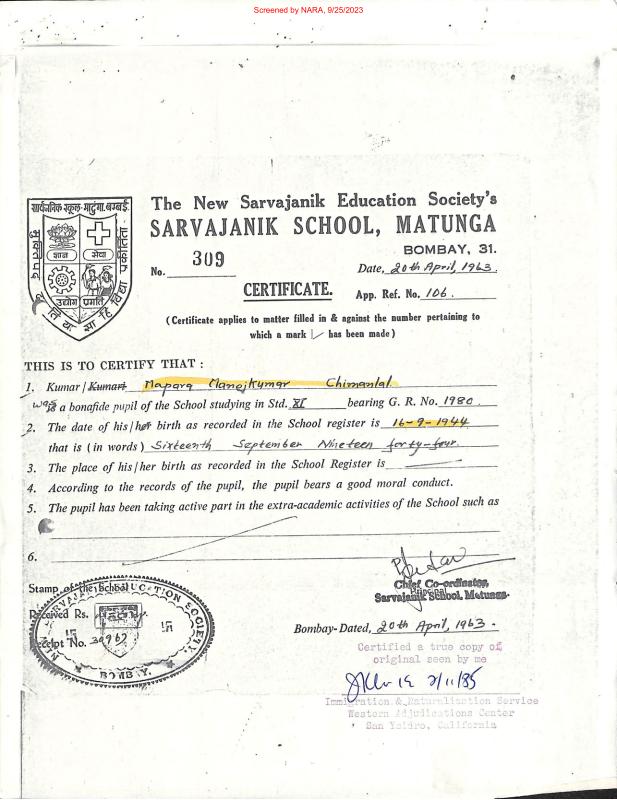 Screened by NARA, 9/25/2023
सार्वजनिक स्कूल-माटुंगा, बम्बई.
ज्ञान सेवा
उद्योग प्रगति
The New Sarvajanik Education Society's
SARVAJANIK SCHOOL, MATUNGA
BOMBAY, 31.
No. 309
Date, 20th April, 1963.
CERTIFICATE.
App. Ref. No. 106.
(Certificate applies to matter filled in & against the number pertaining to
which a mark ✓ has been made)
THIS IS TO CERTIFY THAT :
1. Kumar/Kumari Mapara Manojkumar Chimanlal
was a bonafide pupil of the School studying in Std. XI bearing G. R. No. 1980
2. The date of his/her birth as recorded in the School register is 16-9-1944
that is (in words) Sixteenth September Nineteen forty-four.
3. The place of his/her birth as recorded in the School Register is
4. According to the records of the pupil, the pupil bears a good moral conduct.
5. The pupil has been taking active part in the extra-academic activities of the School such as
6.
Chief Co-ordinator,
Principal
Sarvajanik School, Matunga.
Stamp of the School
Received Rs.
Receipt No. 30967
EDUCATION SOCIETY.
BOMBAY.
Bombay-Dated, 20th April, 1963.
Certified a true copy of
original seen by me
2/11/85
Immigration & Naturalization Service
Western Adjudications Center
San Ysidro, California